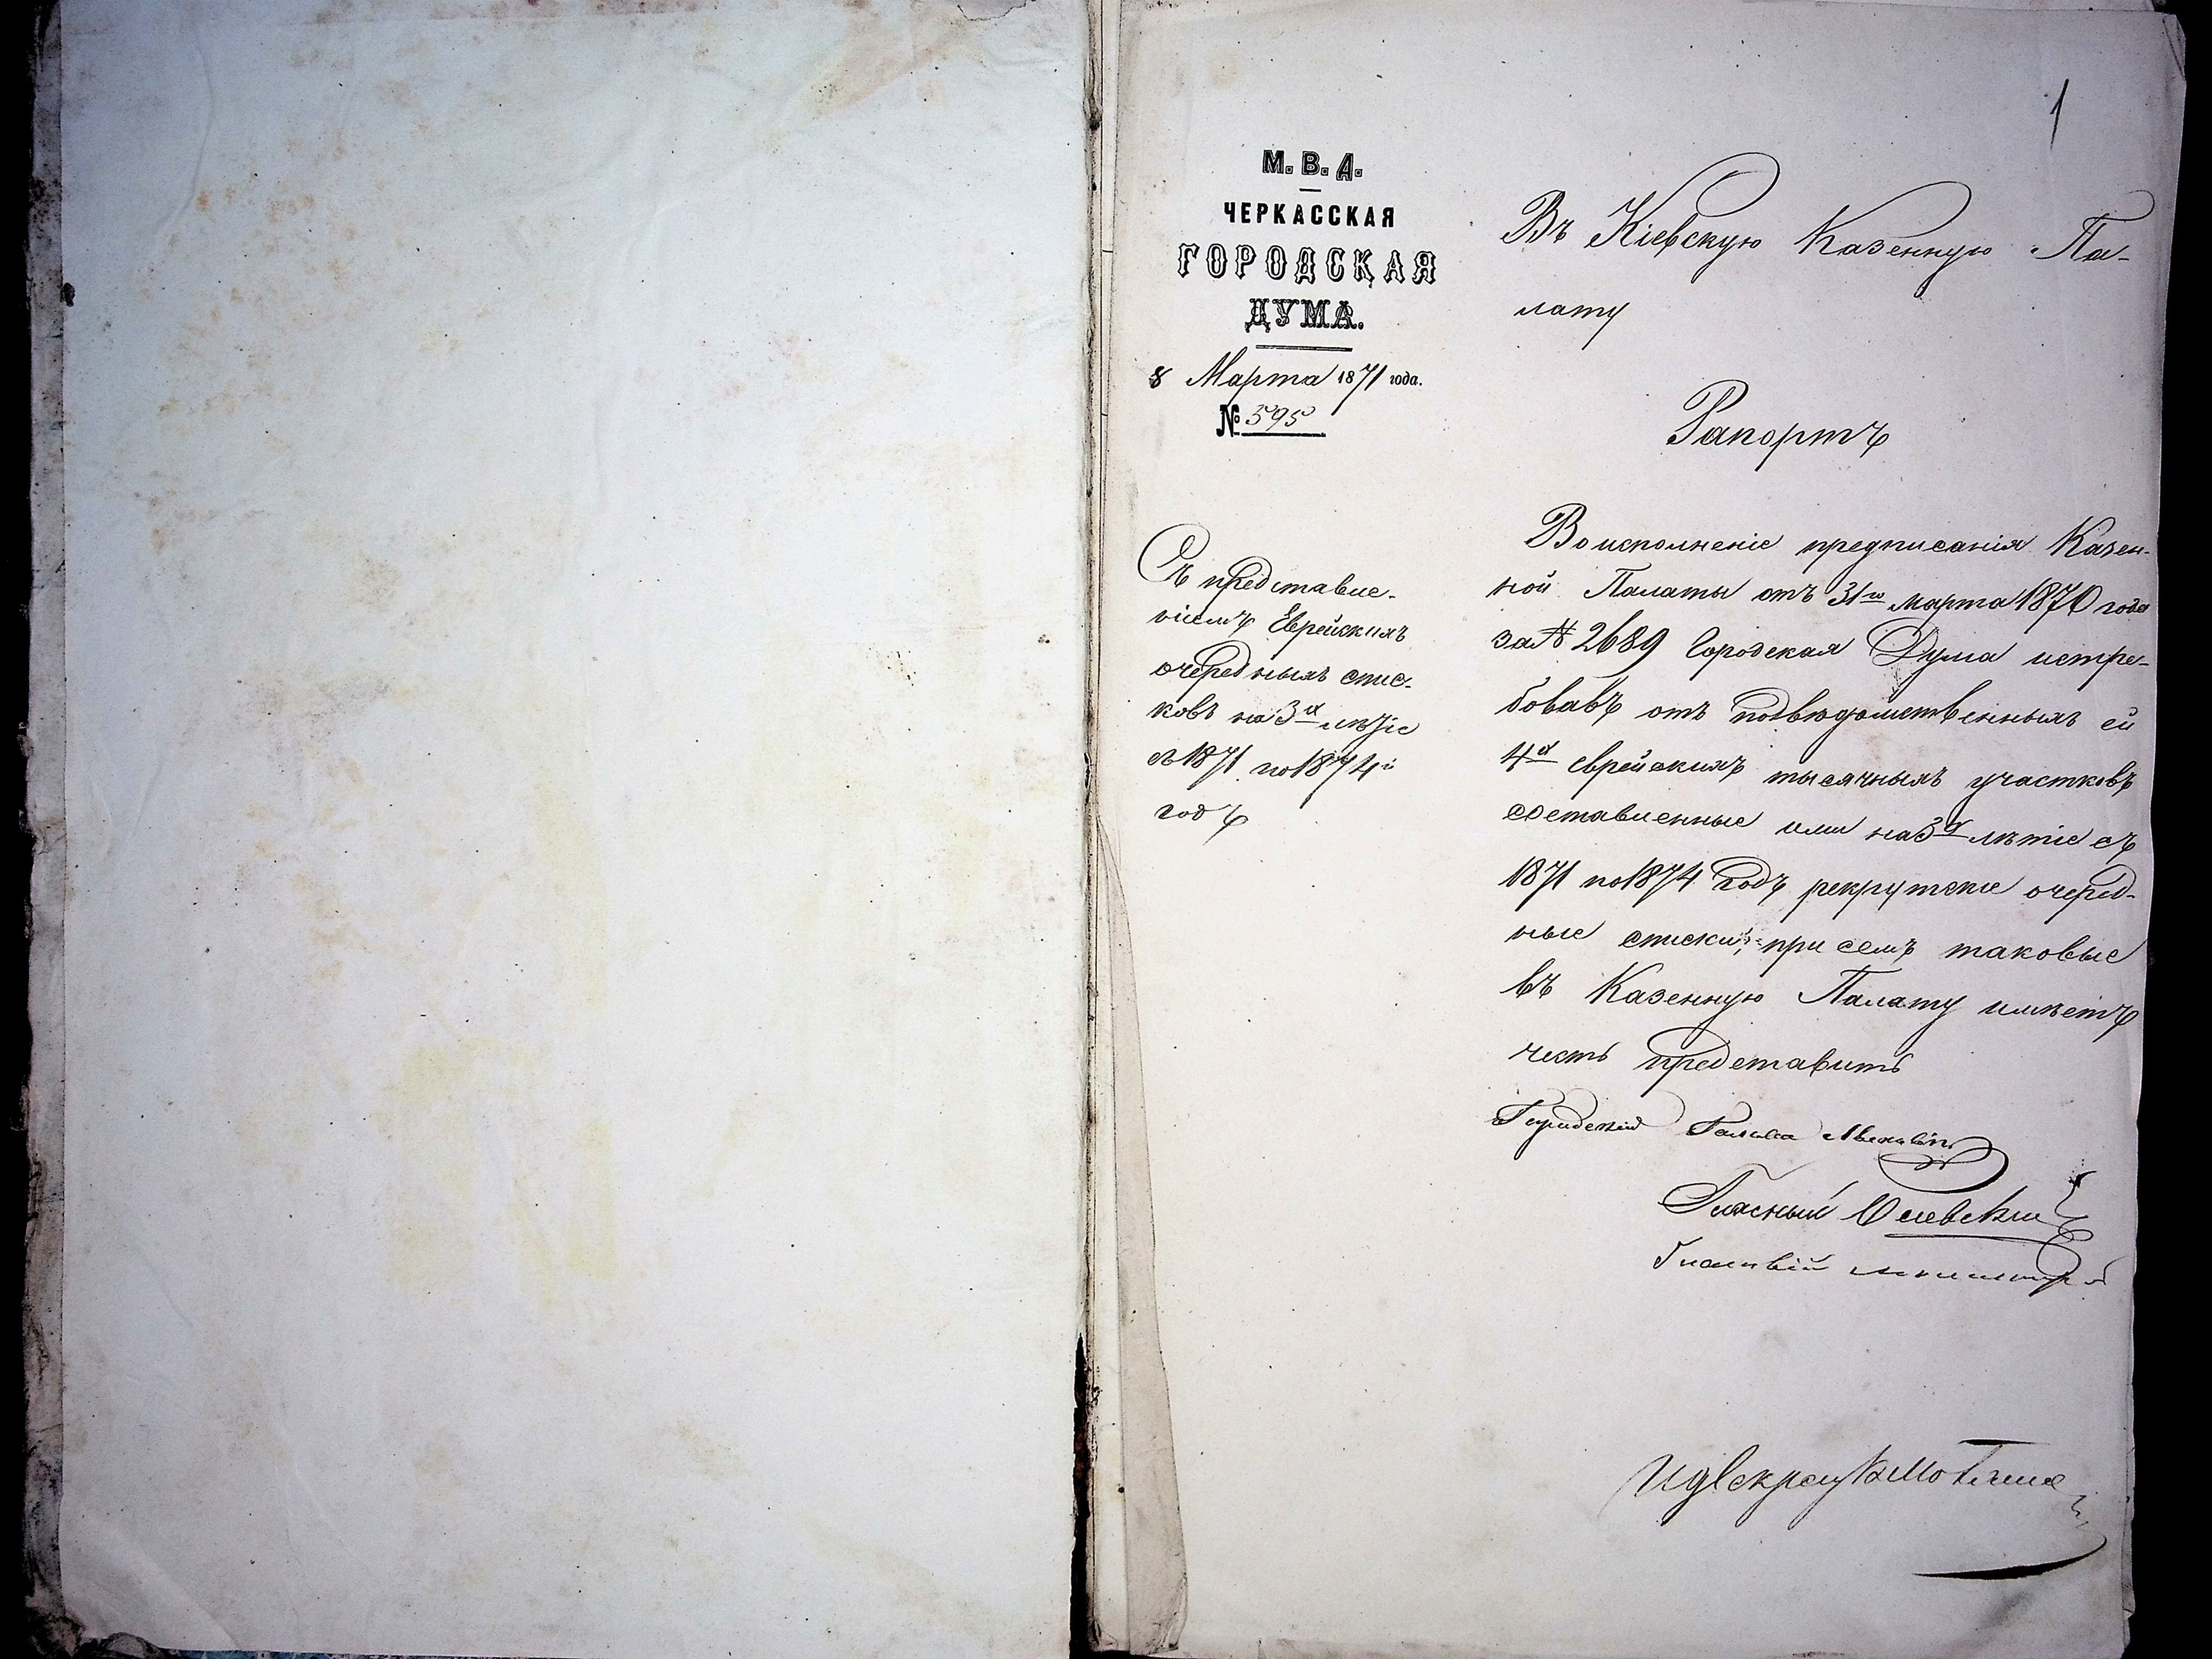 1
М. В. Д.
ЧЕРКАССКАЯ
ГОРОДСКАЯ
ДУМА.
8 Марта 1871 года.
№ 595
Съ представле-
ніемъ Еврейскихъ
очередныхъ спис-
ковъ на 3х лѣтіе
съ 1871 по 1874й
годъ
Въ Кіевскую Казенную Па-
лату
Рапортъ
Во исполненіе предписанія Казен-
ной Палаты отъ 31го Марта 1870 года
за № 2689 Городская Дума истре-
бовавъ отъ подвѣдомственныхъ ей
4х еврейскихъ тысячныхъ участковъ
составленные ими на 3х лѣтіе съ
1871 по 1874 годъ рекрутскіе очеред-
ные списки, при семъ таковые
въ Казенную Палату имѣетъ
честь представить
Городской Голова
Гласный
Гласный